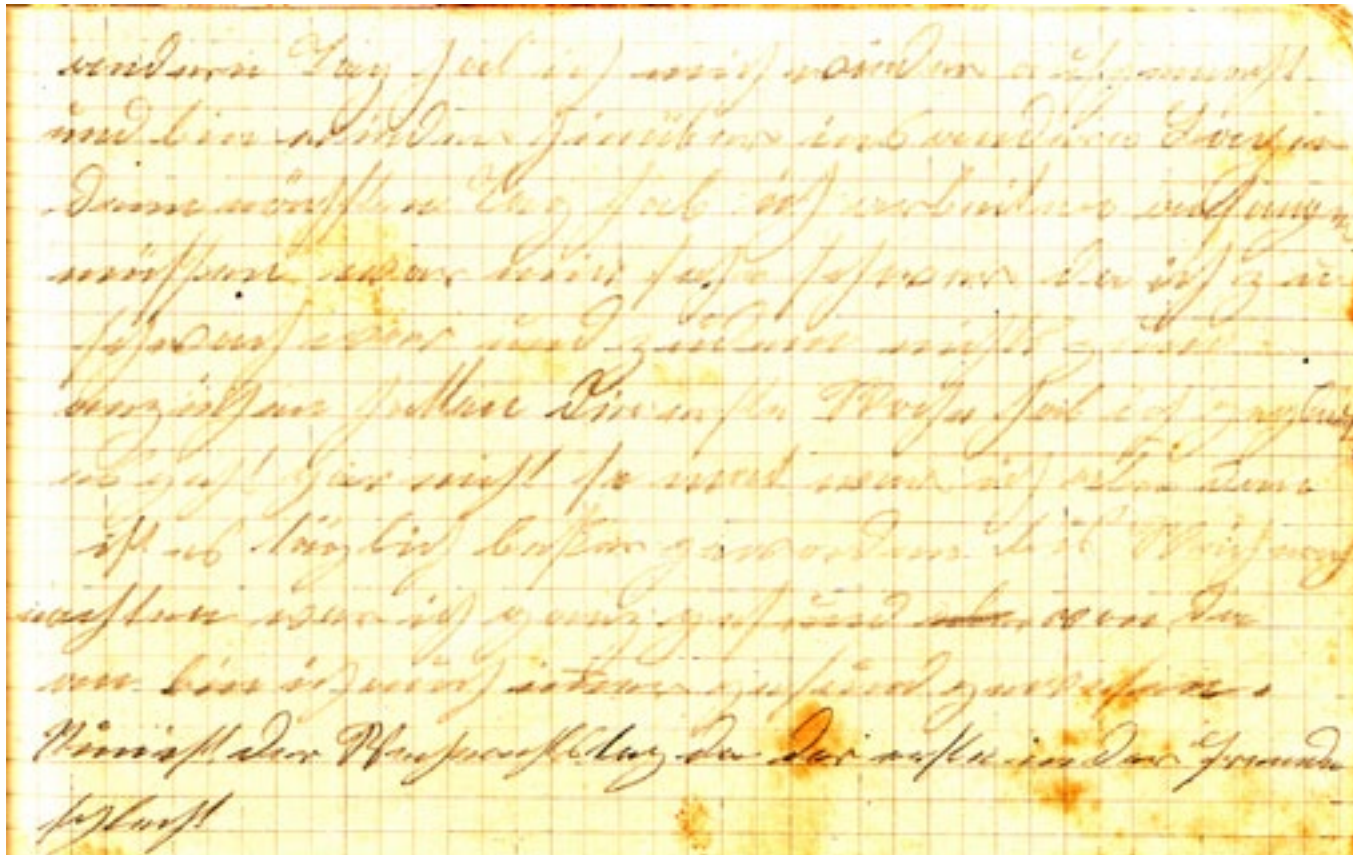 andern Tag hab ich mich wieder aufgemacht
und bin wieder hinüber ins andere
dann nächsten Tag hab ich arbeiten anfangen
müssen war mir sehr schwer da ich zu
schwach war und zudem nicht
hatten Die erste Woche hab ich geglaubt
es geht gar nicht so matt war ich aber dann
ist es täglich besser geworden bis Weihnachten
war ich ganz gesund von da
an bin ich auch immer gesund gewesen.
Nun ist der Weihnachtstag da der erste in der Fremde
schlecht